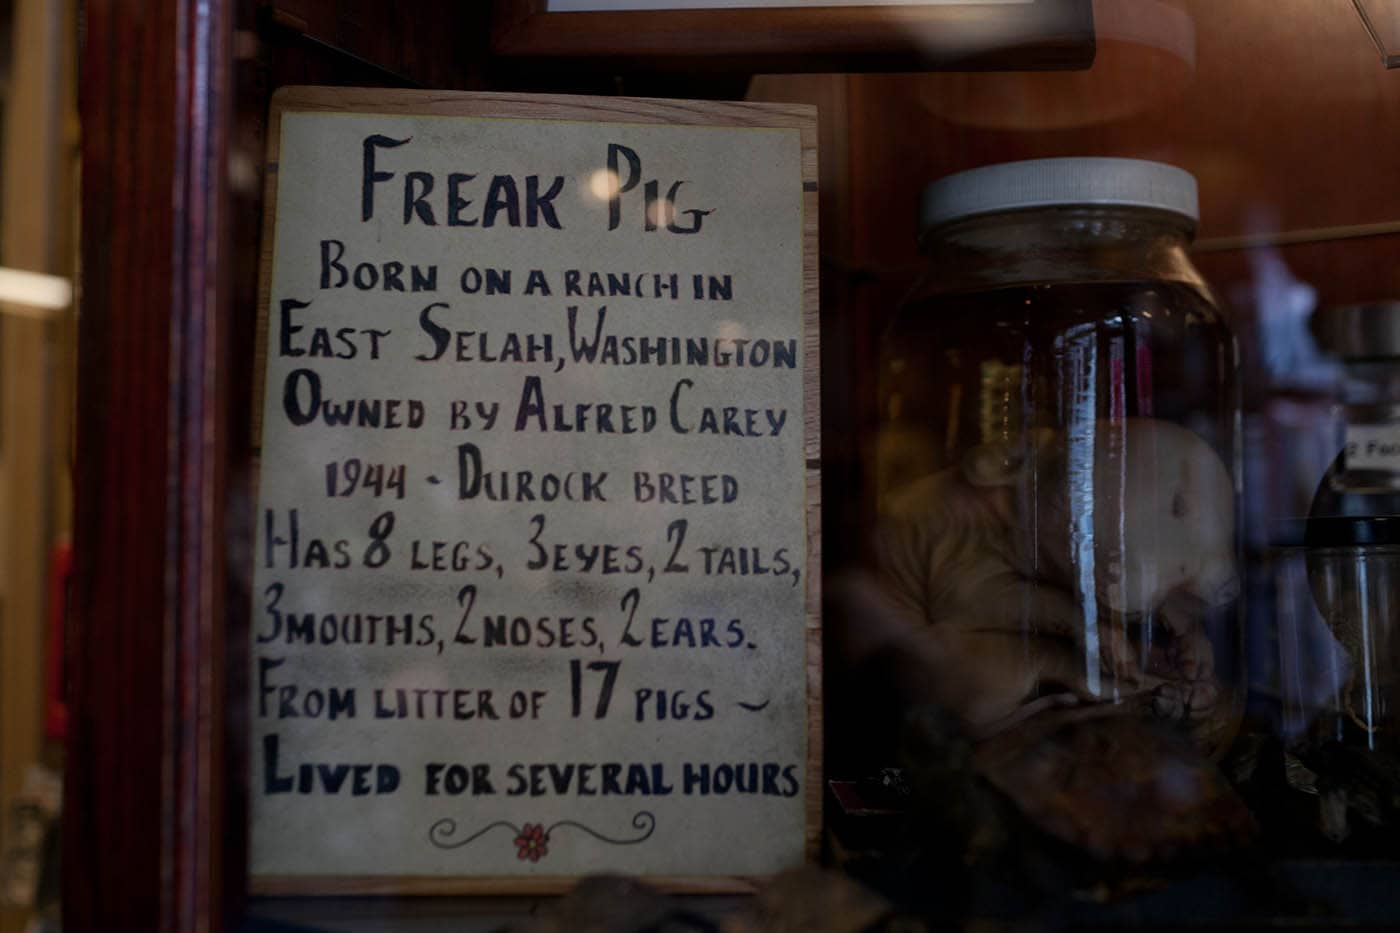 FREAK PIG
BORN ON A RANCH IN
EAST SELAH, WASHINGTON
OWNED BY ALFRED CAREY
1944 - DUROCK BREED
HAS 8 LEGS, 3 EYES, 2 TAILS,
3 MOUTHS, 2 NOSES, 2 EARS.
FROM LITTER OF 17 PIGS ~
LIVED FOR SEVERAL HOURS
2